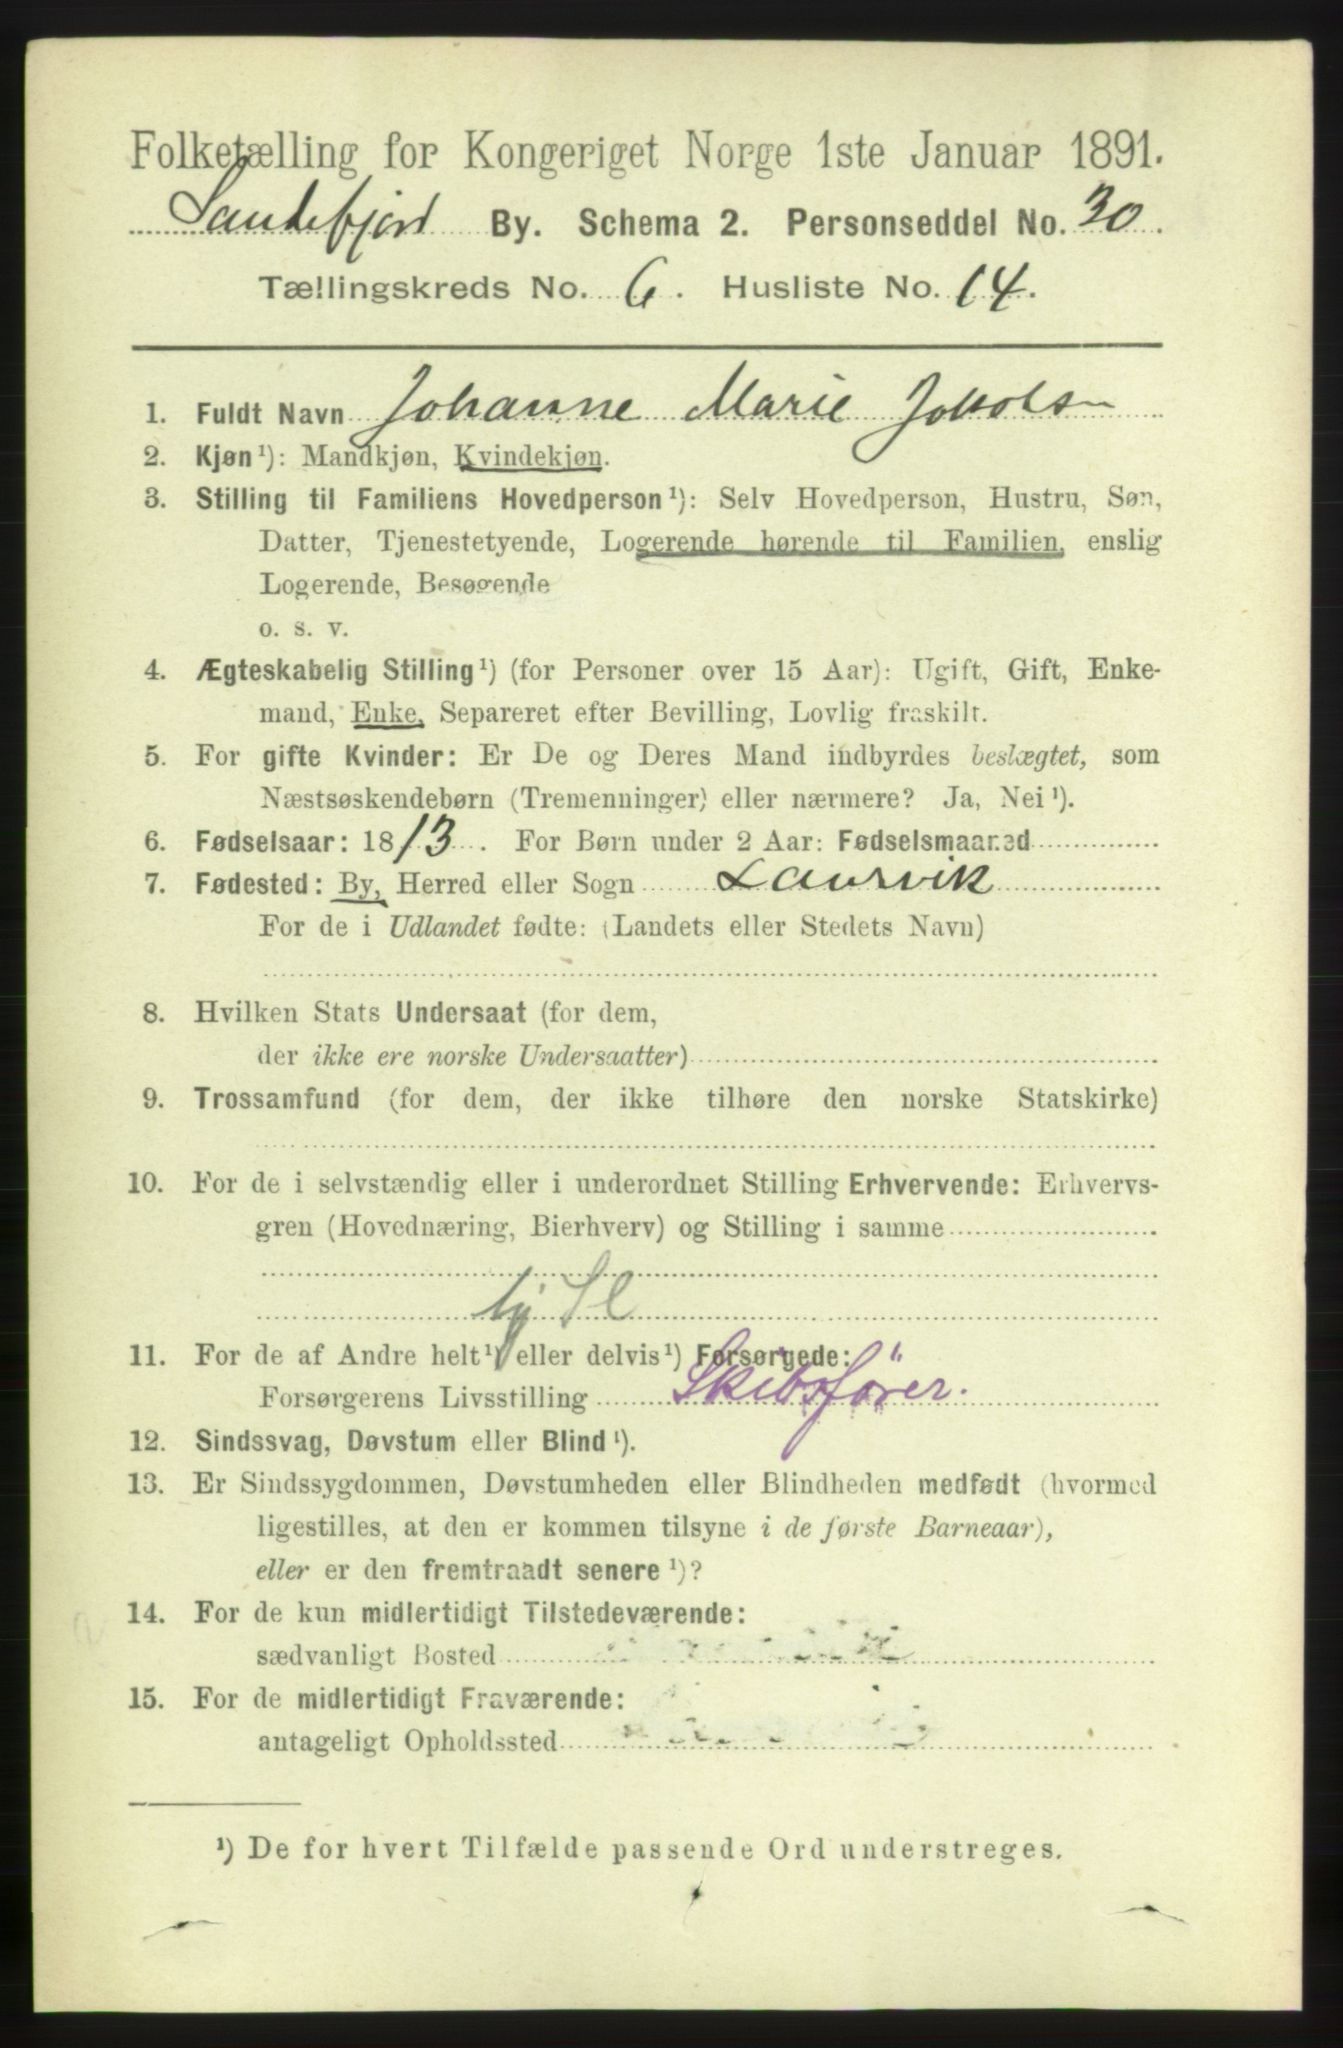 Folketælling for Kongeriget Norge 1ste Januar 1891.
Sandefjord By. Schema 2. Personseddel No. 30.
Tællingskreds No. 6. Husliste No. 14.
1. Fuldt Navn Johanne Marie
2. Kjøn¹): Mandkjøn, Kvindekjøn.
3. Stilling til Familiens Hovedperson¹): Selv Hovedperson, Hustru, Søn,
Datter, Tjenestetyende, Logerende hørende til Familien, enslig
Logerende, Besøgende
o. s. v.
4. Ægteskabelig Stilling¹) (for Personer over 15 Aar): Ugift, Gift, Enke-
mand, Enke, Separeret efter Bevilling, Lovlig fraskilt.
5. For gifte Kvinder: Er De og Deres Mand indbyrdes beslægtet, som
Næstsøskendebørn (Tremenninger) eller nærmere? Ja, Nei¹).
6. Fødselsaar: 1813. For Børn under 2 Aar: Fødselsmaaned
7. Fødested: By, Herred eller Sogn Laurvik
For de i Udlandet fødte: (Landets eller Stedets Navn)
8. Hvilken Stats Undersaat (for dem,
der ikke ere norske Undersaatter)
9. Trossamfund (for dem, der ikke tilhøre den norske Statskirke)
10. For de i selvstændig eller i underordnet Stilling Erhvervende: Erhvervs-
gren (Hovednæring, Bierhverv) og Stilling i samme
11. For de af Andre helt¹) eller delvis¹) Forsørgede:
Forsørgerens Livsstilling Skibsförer.
12. Sindssvag, Døvstum eller Blind¹).
13. Er Sindssygdommen, Døvstumheden eller Blindheden medfødt (hvormed
ligestilles, at den er kommen tilsyne i de første Barneaar),
eller er den fremtraadt senere¹)?
14. For de kun midlertidigt Tilstedeværende:
sædvanligt Bosted
15. For de midlertidigt Fraværende:
antageligt Opholdssted
¹) De for hvert Tilfælde passende Ord understreges.